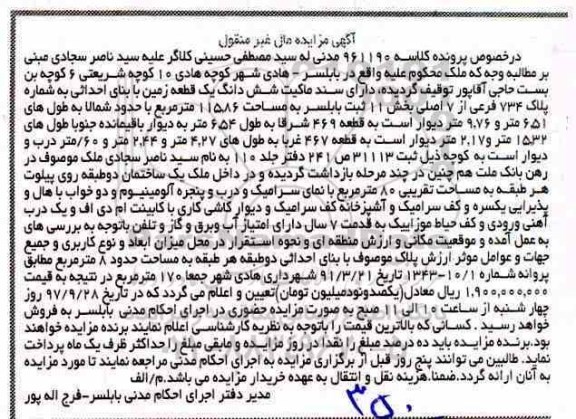 آگهی مزایده مال غیر منقول
درخصوص پرونده کلاسه ۹۶۱۱۹۰ مدنی له سید مصطفی حسینی کلاگر علیه سید ناصر سجادی مبنی
بر مطالبه وجه که ملک محکوم علیه واقع در بابلسر - هادی شهر کوچه هادی ۱۰ کوچه شریعتی ۶ کوچه بن
بست حاجی آقاپور توقیف گردیده، دارای سند ماکیت شش دانگ یک قطعه زمین با بنای احداثی به شماره
پلاک ۷۳۴ فرعی از ۷ اصلی بخش ۱۱ ثبت بابلسر به مساحت ۱۱۵،۸۶ مترمربع با حدود شمالا به طول های
۶،۵۱ متر و ۹،۷۶ متر دیوار است به قطعه ۴۶۹ شرقا به طول ۶،۵۴ متر به دیوار باقیمانده جنوبا طول های
۱۵،۳۲ متر و۲،۱۷ متر دیوار است به قطعه ۴۶۷ غربا به طول های ۴،۲۷ متر و ۲،۴۴ متر و ۶۰/متر درب و
دیوار است به کوچه ذیل ثبت ۳۱۱۱۳ ص ۲۴۱ دفتر جلد ۱۱۰ به نام سید ناصر سجادی ملک موصوف در
رهن بانک ملت هم چنین در چند مرحله بازداشت گردیده و در داخل ملک یک ساختمان دوطبقه روی پیلوت
هر طبقه به مساحت تقریبی ۸۰ مترمربع با نمای سرامیک و درب و پنجره آلومینیوم و دو خواب با هال و
پذیرایی یکسره و کف سرامیک و آشپزخانه کف سرامیک و دیوار کاشی کاری با کابینت ام دی اف و یک درب
آهنی ورودی و کف حیاط موزاییک به قدمت ۷ سال دارای امتیاز آب وبرق و گاز و تلفن باتوجه به بررسی های
به عمل آمده و موقعیت مکانی و ارزش منطقه ای و نحوه استقرار در محل میزان ابعاد و نوع کاربری و جمیع
جهات و عوامل موثر ارزش پلاک موصوف با بنای احداثی دوطبقه هر طبقه به مساحت حدود ۸ مترمربع مطابق
پروانه شماره ۱۰/۱-۱۳۴۳ تاریخ ۹۱/۳/۲۱ شهرداری هادی شهر جمعا ۱۷۰ مترمربع در نتیجه به قیمت
۱،۹۰۰،۰۰۰،۰۰۰ ریال معادل(یکصدونودمیلیون تومان)تعیین و اعلام می گردد که در تاریخ ۹۷/۹/۲۸ روز
چهار شنبه از ساعت ۱۰ الی ۱۱ صبح به صورت مزایده حضوری در اجرای احکام مدنی بابلسر به فروش
خواهد رسید . کسانی که بالاترین قیمت را باتوجه به نظریه کارشناسی اعلام نمایند برنده مزایده خواهند
بود.برنده مزایده باید ده درصد مبلغ را نقدا در روز مزایده و مابقی مبلغ را حداکثر ظرف یک ماه پرداخت
نماید. طالبین می توانند پنج روز قبل از برگزاری مزایده به اجرای احکام مدنی مراجعه نمایند تا مورد مزایده
به آنان ارائه گردد.ضمنا،هزینه نقل و انتقال به عهده خریدار مزایده می باشد.م/الف
مدیر دفتر اجرای احکام مدنی بابلسر-فرج اله پور